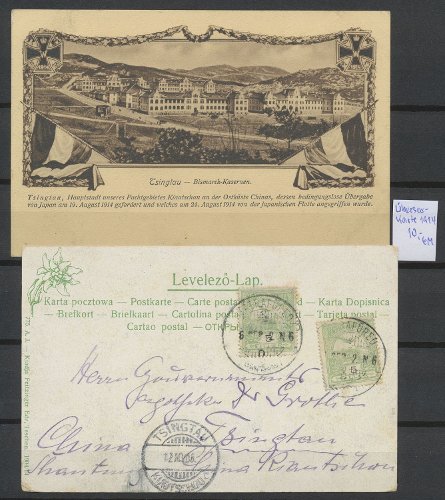 Tsingtau — Bismarck-Kasernen.
Tsingtau, Hauptstadt unseres Pachtgebietes Kiautschou an der Ostküste Chinas, dessen bedingungslose Übergabe
von Japan am 19. August 1914 gefordert und welches am 24. August 1914 von der japanischen Flotte angegriffen wurde.
Übersee-
karte 1914
10,-
Levelező-Lap.
Karta pocztowa — Postkarte — Carte postale
Karta Dopisnica
— Brefkort — Briefkaart — Cartolina postale
Tarjeta postal
Cartao postal — ОТКРЫ
Herrn Gouvernements
Apotheker Dr Grothe
China Tsingtau
Shantung China Kiautschou
TSINGTAU
KIAUTSCHOU